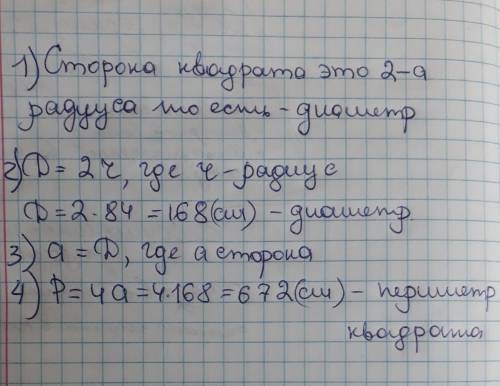 1) Сторона квадрата это 2-а
радууса то есть - диаметр
2) D = 2r, где r - радиус
D = 2·84 = 168 (см) - диаметр
3) a = D, где а сторона
4) P = 4a = 4·168 = 672 (см) - периметр
квадрата